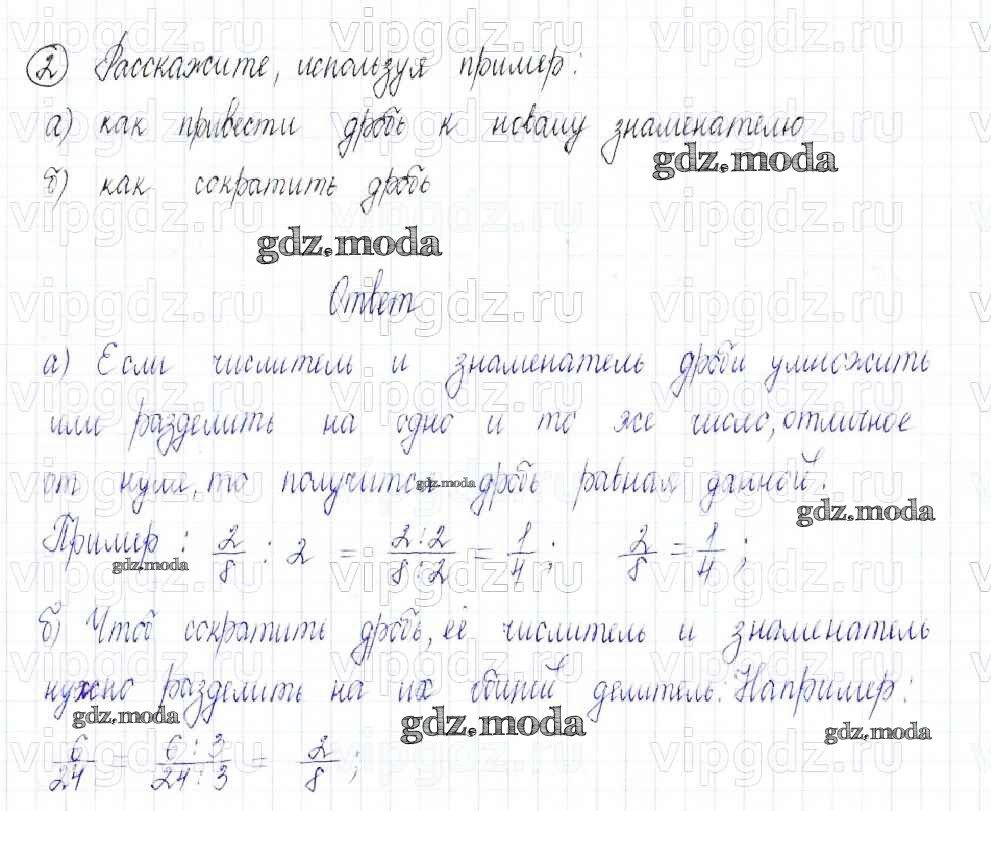 vipgdz.ru vipgdz.ru vipgdz.ru vipgdz.ru vipgdz.ru
② Расскажите, используя пример:
а) как привести дробь к новому знаменателю
gdz.moda
б) как сократить дробь
gdz.moda
Ответ
а) Если числитель и знаменатель дроби умножить
или разделить на одно и то же число, отличное
от нуля, то получится дробь равная данной.
gdz.moda
gdz.moda
Пример: 2/8 : 2 = 2:2/8:2 = 1/4; 2/8 = 1/4;
gdz.moda
б) Чтоб сократить дробь, её числитель и знаменатель
нужно разделить на их общий делитель. Например:
gdz.moda gdz.moda gdz.moda
6/24 = 6:3/24:3 = 2/8;